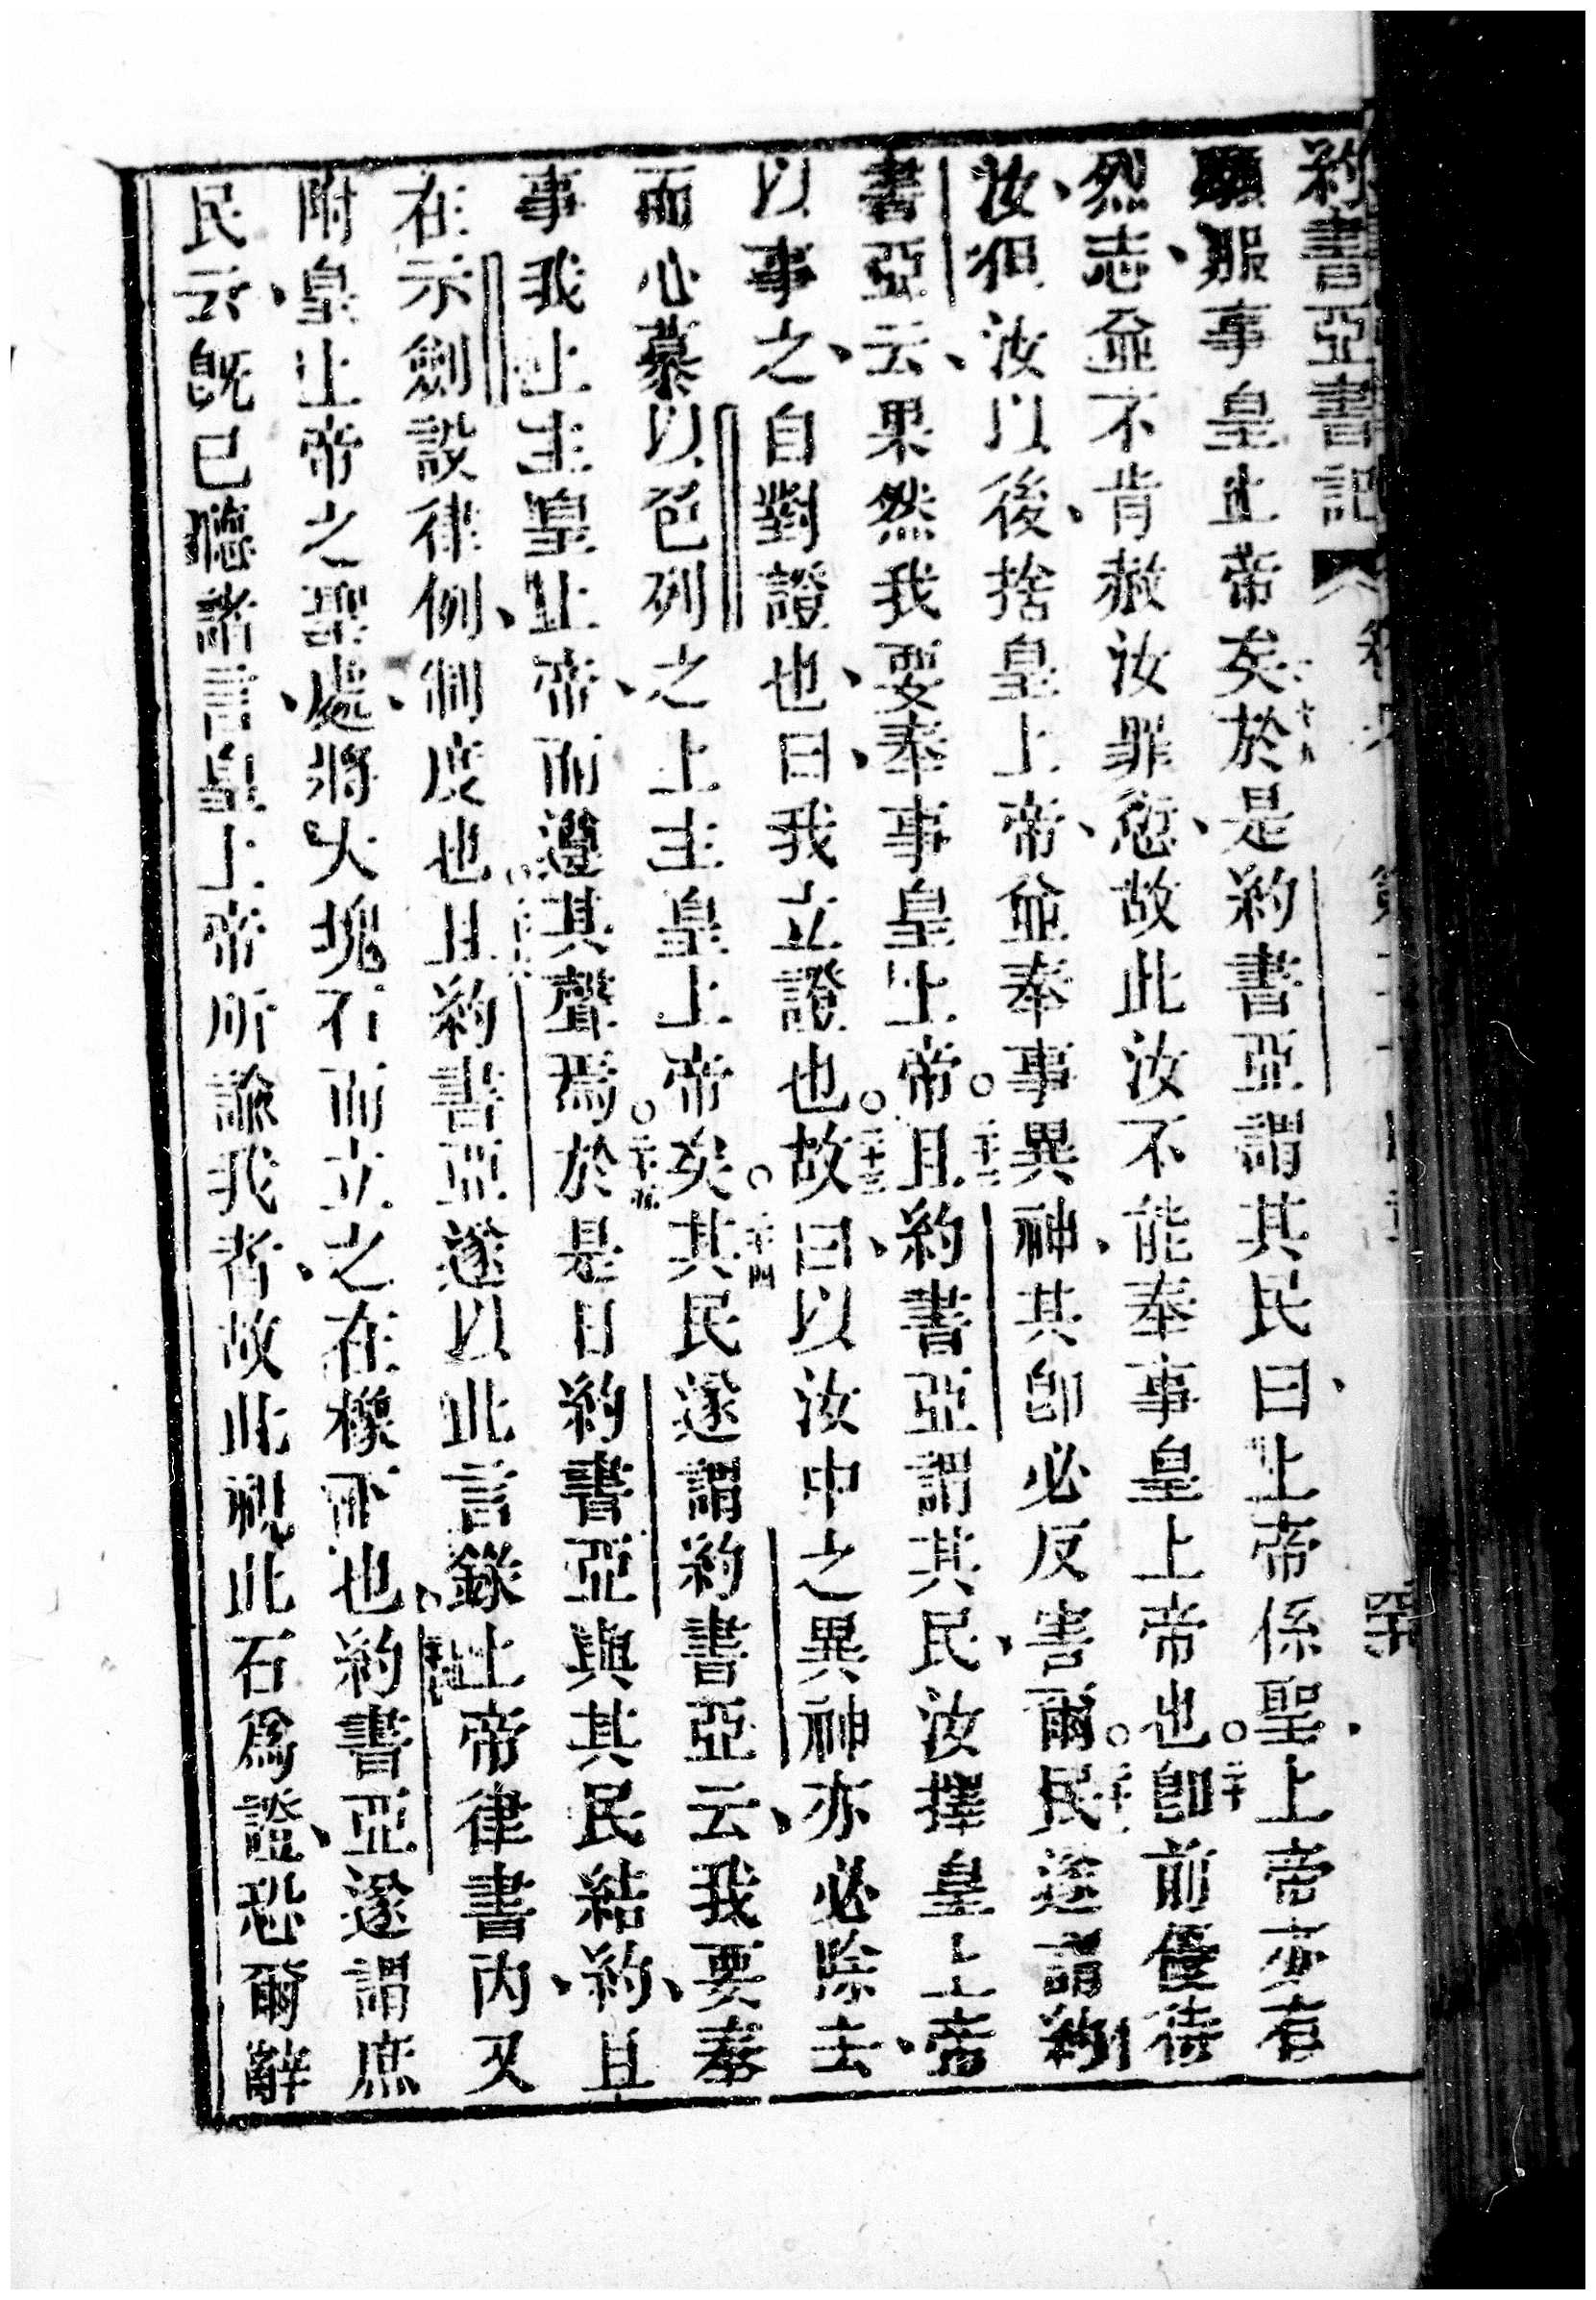 約書亞書記
願服事皇上帝矣十九於是約書亞謂其民曰、上帝係聖、上帝妄有
然志、並不肯赦汝罪愆、故此汝不能奉事皇上帝也。二十卽前優待
汝、但汝以後、捨皇上帝、並奉事異神、其卽必反害爾。民遂謂約
書亞云、果然我要奉事皇上帝。二十二且約書亞謂其民、汝擇皇上帝
以事之、自對證也、曰、我立證也。二十三故曰、以汝中之異神亦必除去、
而心慕以色列之上主皇上帝矣。二十四其民遂謂約書亞云、我要奉
事我上主皇上帝、而遵其聲焉。二十五於是日約書亞與其民結約、且
在示劍設律例、制度也。且約書亞遂以此言錄上帝律書內、又
附皇上帝之聖處、將大塊石而立之在橡下也、約書亞遂謂庶
民云、旣已聽諸言、皇上帝所諭我者、故此視此石爲證、恐爾辭